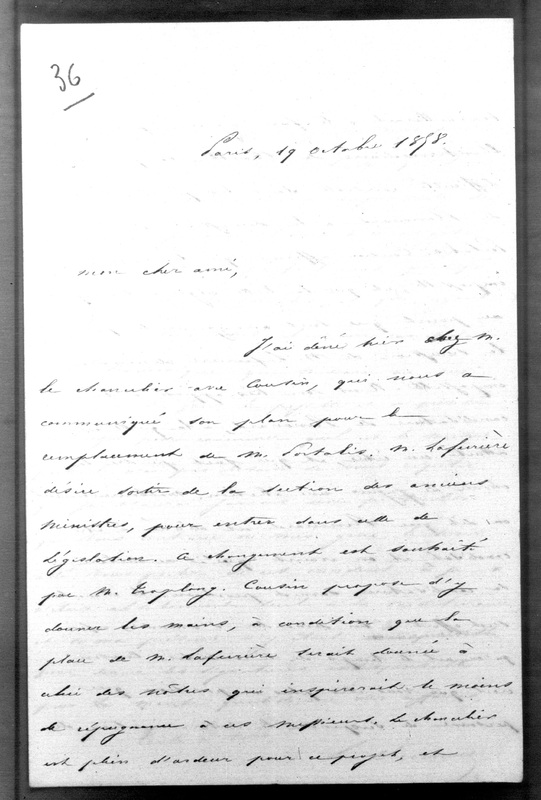 36
Paris, 19 octobre 1858.
mon cher ami,
J'ai dîné hier chez M.
le chancelier avec Cousin, qui nous a
communiqué son plan pour le
remplacement de M. Portalis. M. Laferrière
désire sortir de la section des anciens
ministres, pour entrer dans celle de
législation. Ce changement est souhaité
par M. Troplong. Cousin propose d'y
donner les mains, à condition que la
place de M. Laferrière serait donnée à
celui des nôtres qui inspirerait le moins
de répugnance à ces messieurs. Le chancelier
est plein d'ardeur pour ce projet, et